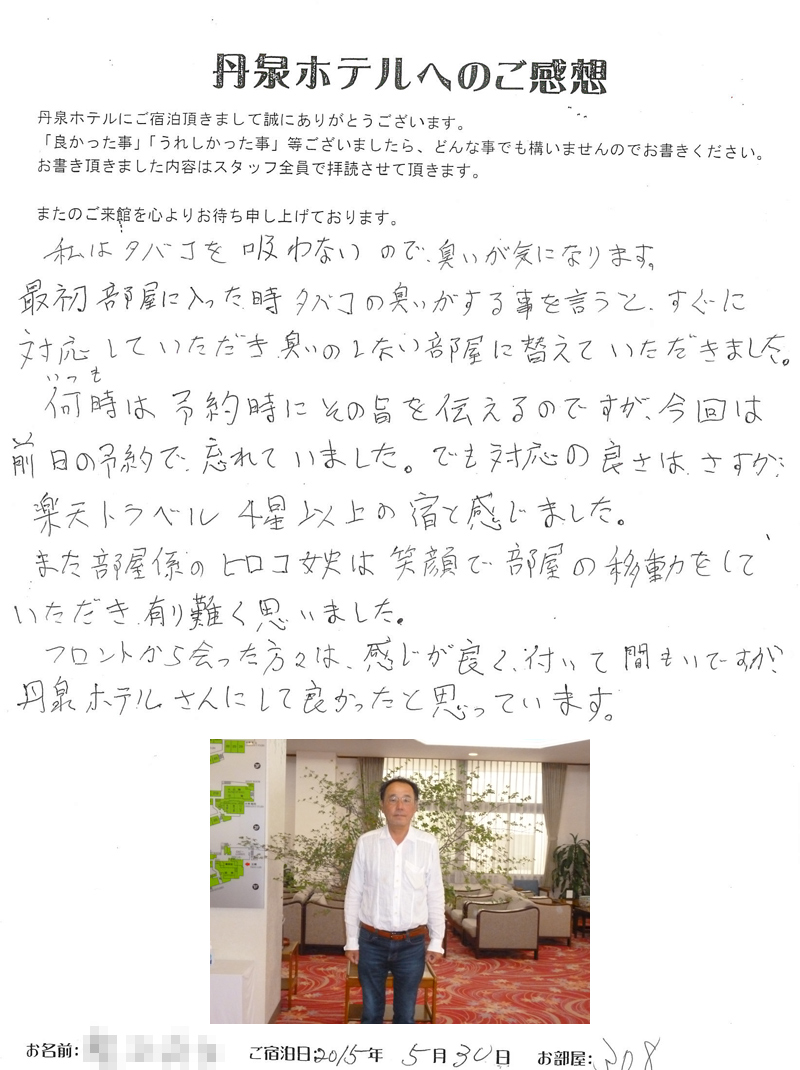 丹泉ホテルへのご感想
丹泉ホテルにご宿泊頂きまして誠にありがとうございます。
「良かった事」「うれしかった事」等ございましたら、どんな事でも構いませんのでお書きください。
お書き頂きました内容はスタッフ全員で拝読させて頂きます。
またのご来館を心よりお待ち申し上げております。
私はタバコを吸わないので、臭いが気になります。
最初部屋に入った時タバコの臭いがする事を言うと、すぐに
対応していただき臭いのしない部屋に替えていただきました。
いつも
何時は予約時にその旨を伝えるのですが、今回は
前日の予約で、忘れていました。でも対応の良さは、さすが
楽天トラベル4星以上の宿と感じました。
また部屋係のヒロコ女史は笑顔で部屋の移動をして
いただき有り難く思いました。
フロントから会った方々は、感じが良く、付いて間もいですが
丹泉ホテルさんにして良かったと思っています。
お名前: ご宿泊日:2015年 5月30日 お部屋: